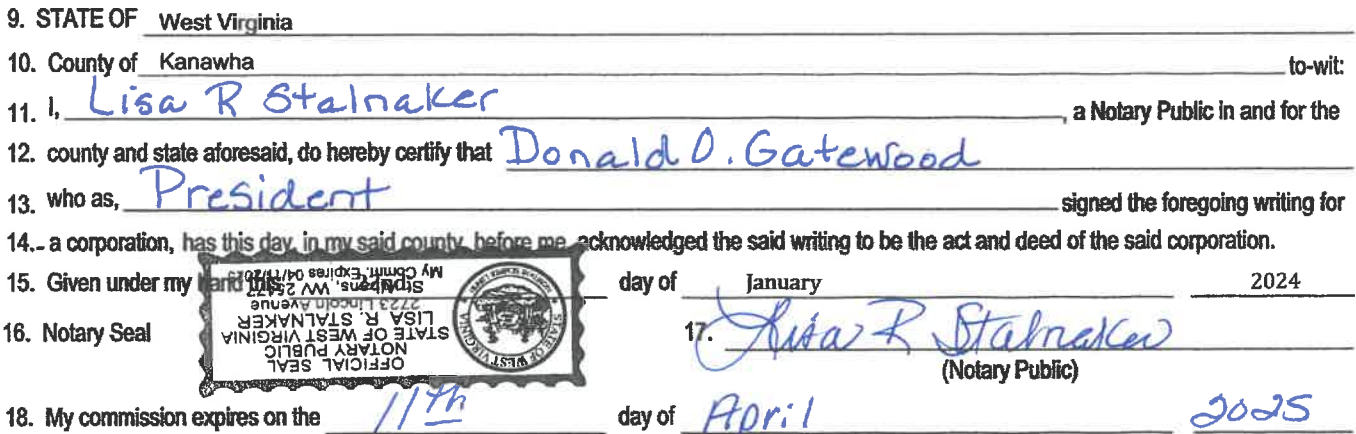 9. STATE OF West Virginia
10. County of Kanawha to-wit:
11. I, Lisa R Stalnaker, a Notary Public in and for the
12. county and state aforesaid, do hereby certify that Donald O. Gatewood
13. who as, President signed the foregoing writing for
14. a corporation, has this day, in my said county, before me, acknowledged the said writing to be the act and deed of the said corporation.
15. Given under my hand this day of January 2024
16. Notary Seal
OFFICIAL SEAL
NOTARY PUBLIC
STATE OF WEST VIRGINIA
LISA R. STALNAKER
2723 Lincoln Avenue
St. Albans, WV
My Comm. Expires 04/11/2025
STATE OF WEST VIRGINIA
17. Lisa R Stalnaker
(Notary Public)
18. My commission expires on the 11th day of April 2025